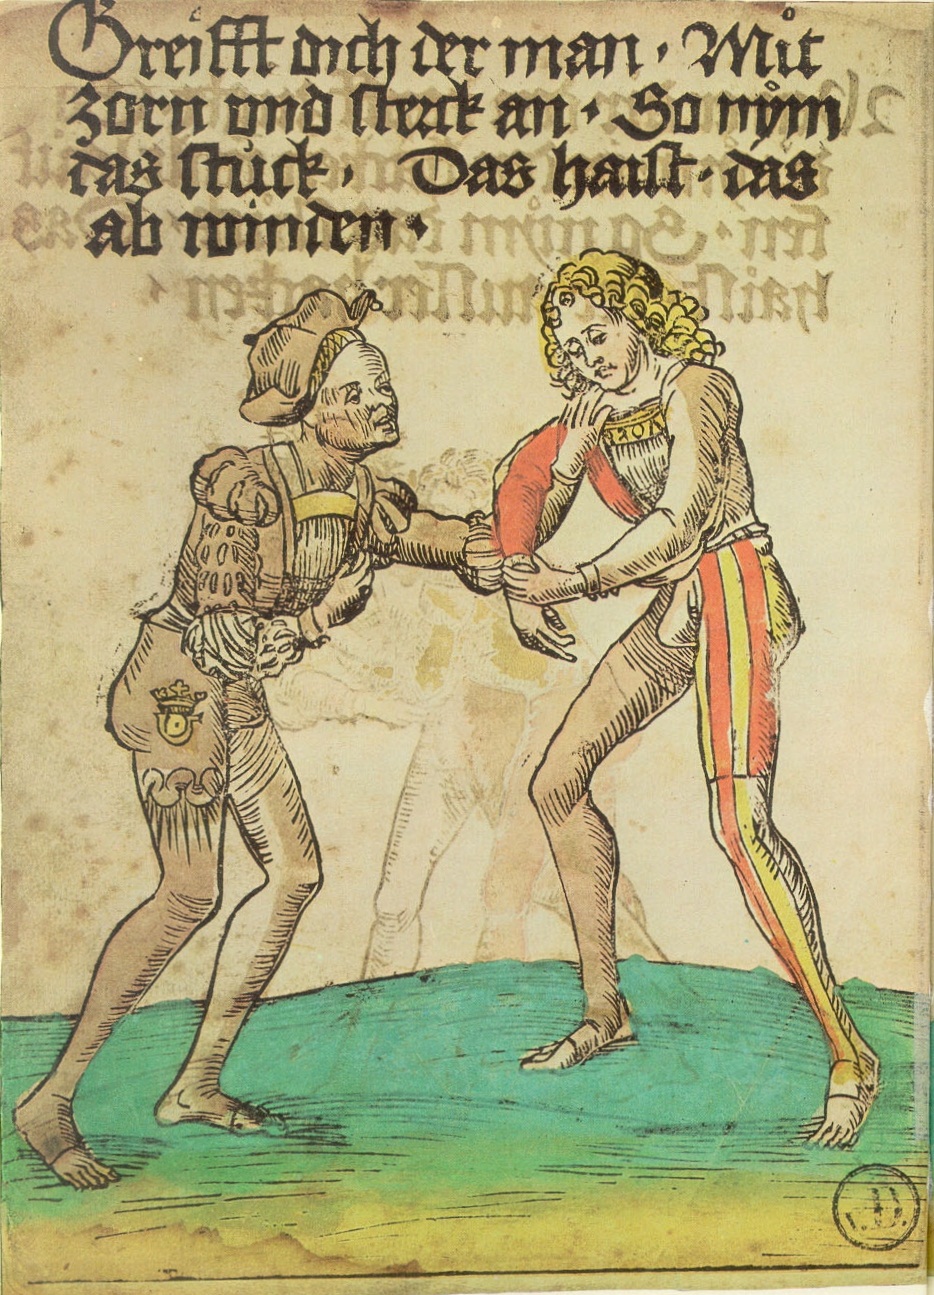 Greifft dich der man · Mit
zorn vnd sterck an · So nym
das stuck · Das haist · das
ab winden ·